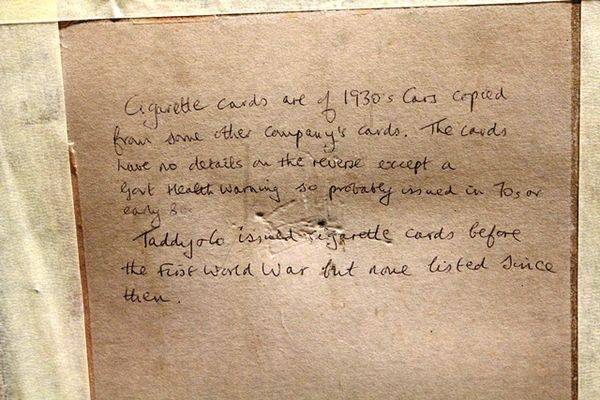 Cigarette cards are of 1930's Cars copied
from some other company's cards. The cards
have no details on the reverse except a
Govt Health Warning so probably issued in 70s or
early 8
Taddy & Co issued cigarette cards before
the First World War but none listed since
then.